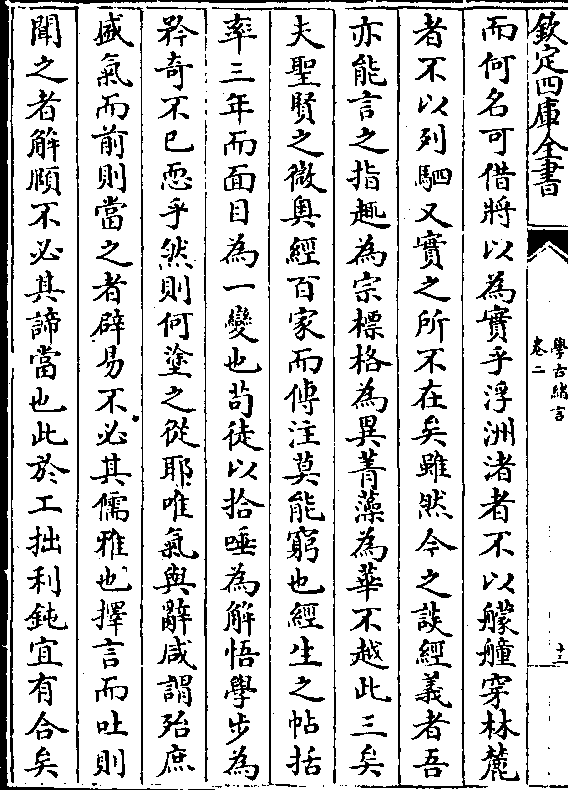 欽定四庫全書
學古緒言
卷二
十二
而何名可借將以為實乎浮洲渚者不以艨艟穿林麓
者不以列駟又實之所不在矣雖然今之談經義者吾
亦能言之指趣為宗標格為異菁藻為華不越此三矣
夫聖賢之微奥經百家而傳注莫能窮也經生之帖括
率三年而面目為一變也茍徒以拾唾為解悟學步為
矜奇不已恧乎然則何塗之從耶唯氣與辭咸謂殆庶
盛氣而前則當之者辟易不必其儒雅也擇言而吐則
聞之者解頤不必其諦當也此於工拙利鈍宜有合矣